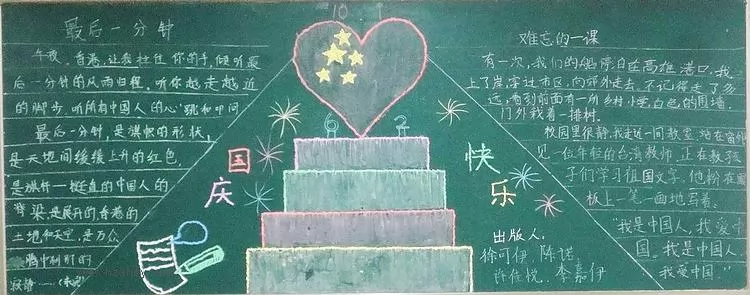 最后一分钟
午夜。香港,让我拄住你的手,倾听最
后一分钟的风雨归程。听你越走越近
的脚步,听所有中国人的心跳和叩问。
最后一分钟,是旗帜的形状,
是天地间缓缓上升的红色,
是旗杆一挺直的中国人的
脊梁,是展开的,香港的
土地和天空,是万众
腾中刹那的
寂静
10 1
6 2
国庆
快乐
难忘的一课
有一次,我们的船停泊在高雄港口,我
上了岸,穿过市区,向郊外走去。不记得走了多
远,看到前面有一所乡村小学,白色的围墙,
门外栽着一排树。
校园里很静,我走近一间教室,站在窗外
见一位年轻的台湾教师,正在教孩
子们学习祖国文字。他粉在
板上一笔一画地写着:
"我是中国人,我爱中
国。我是中国人,
我爱中国。"
出版人:
徐可伊,陈诺
许佳悦,李嘉伊